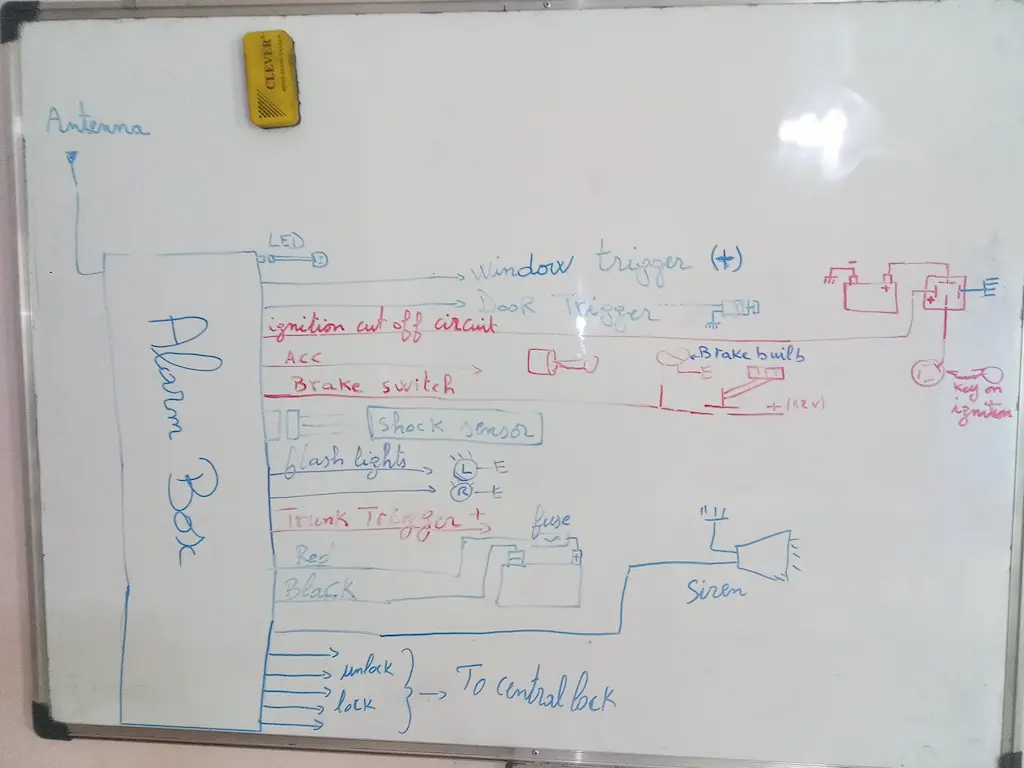 CLEVER
Antenna
LED
Window trigger (+)
Door Trigger
ignition cut off circuit
- +
+
ACC
Brake builb
Brake switch
+ (12V)
key on
ignition
Shock sensor
flash lights
L
R
Trunk Trigger +
fuse
Red
Black
- +
Siren
unlock
lock
To central lock
Alarm Box